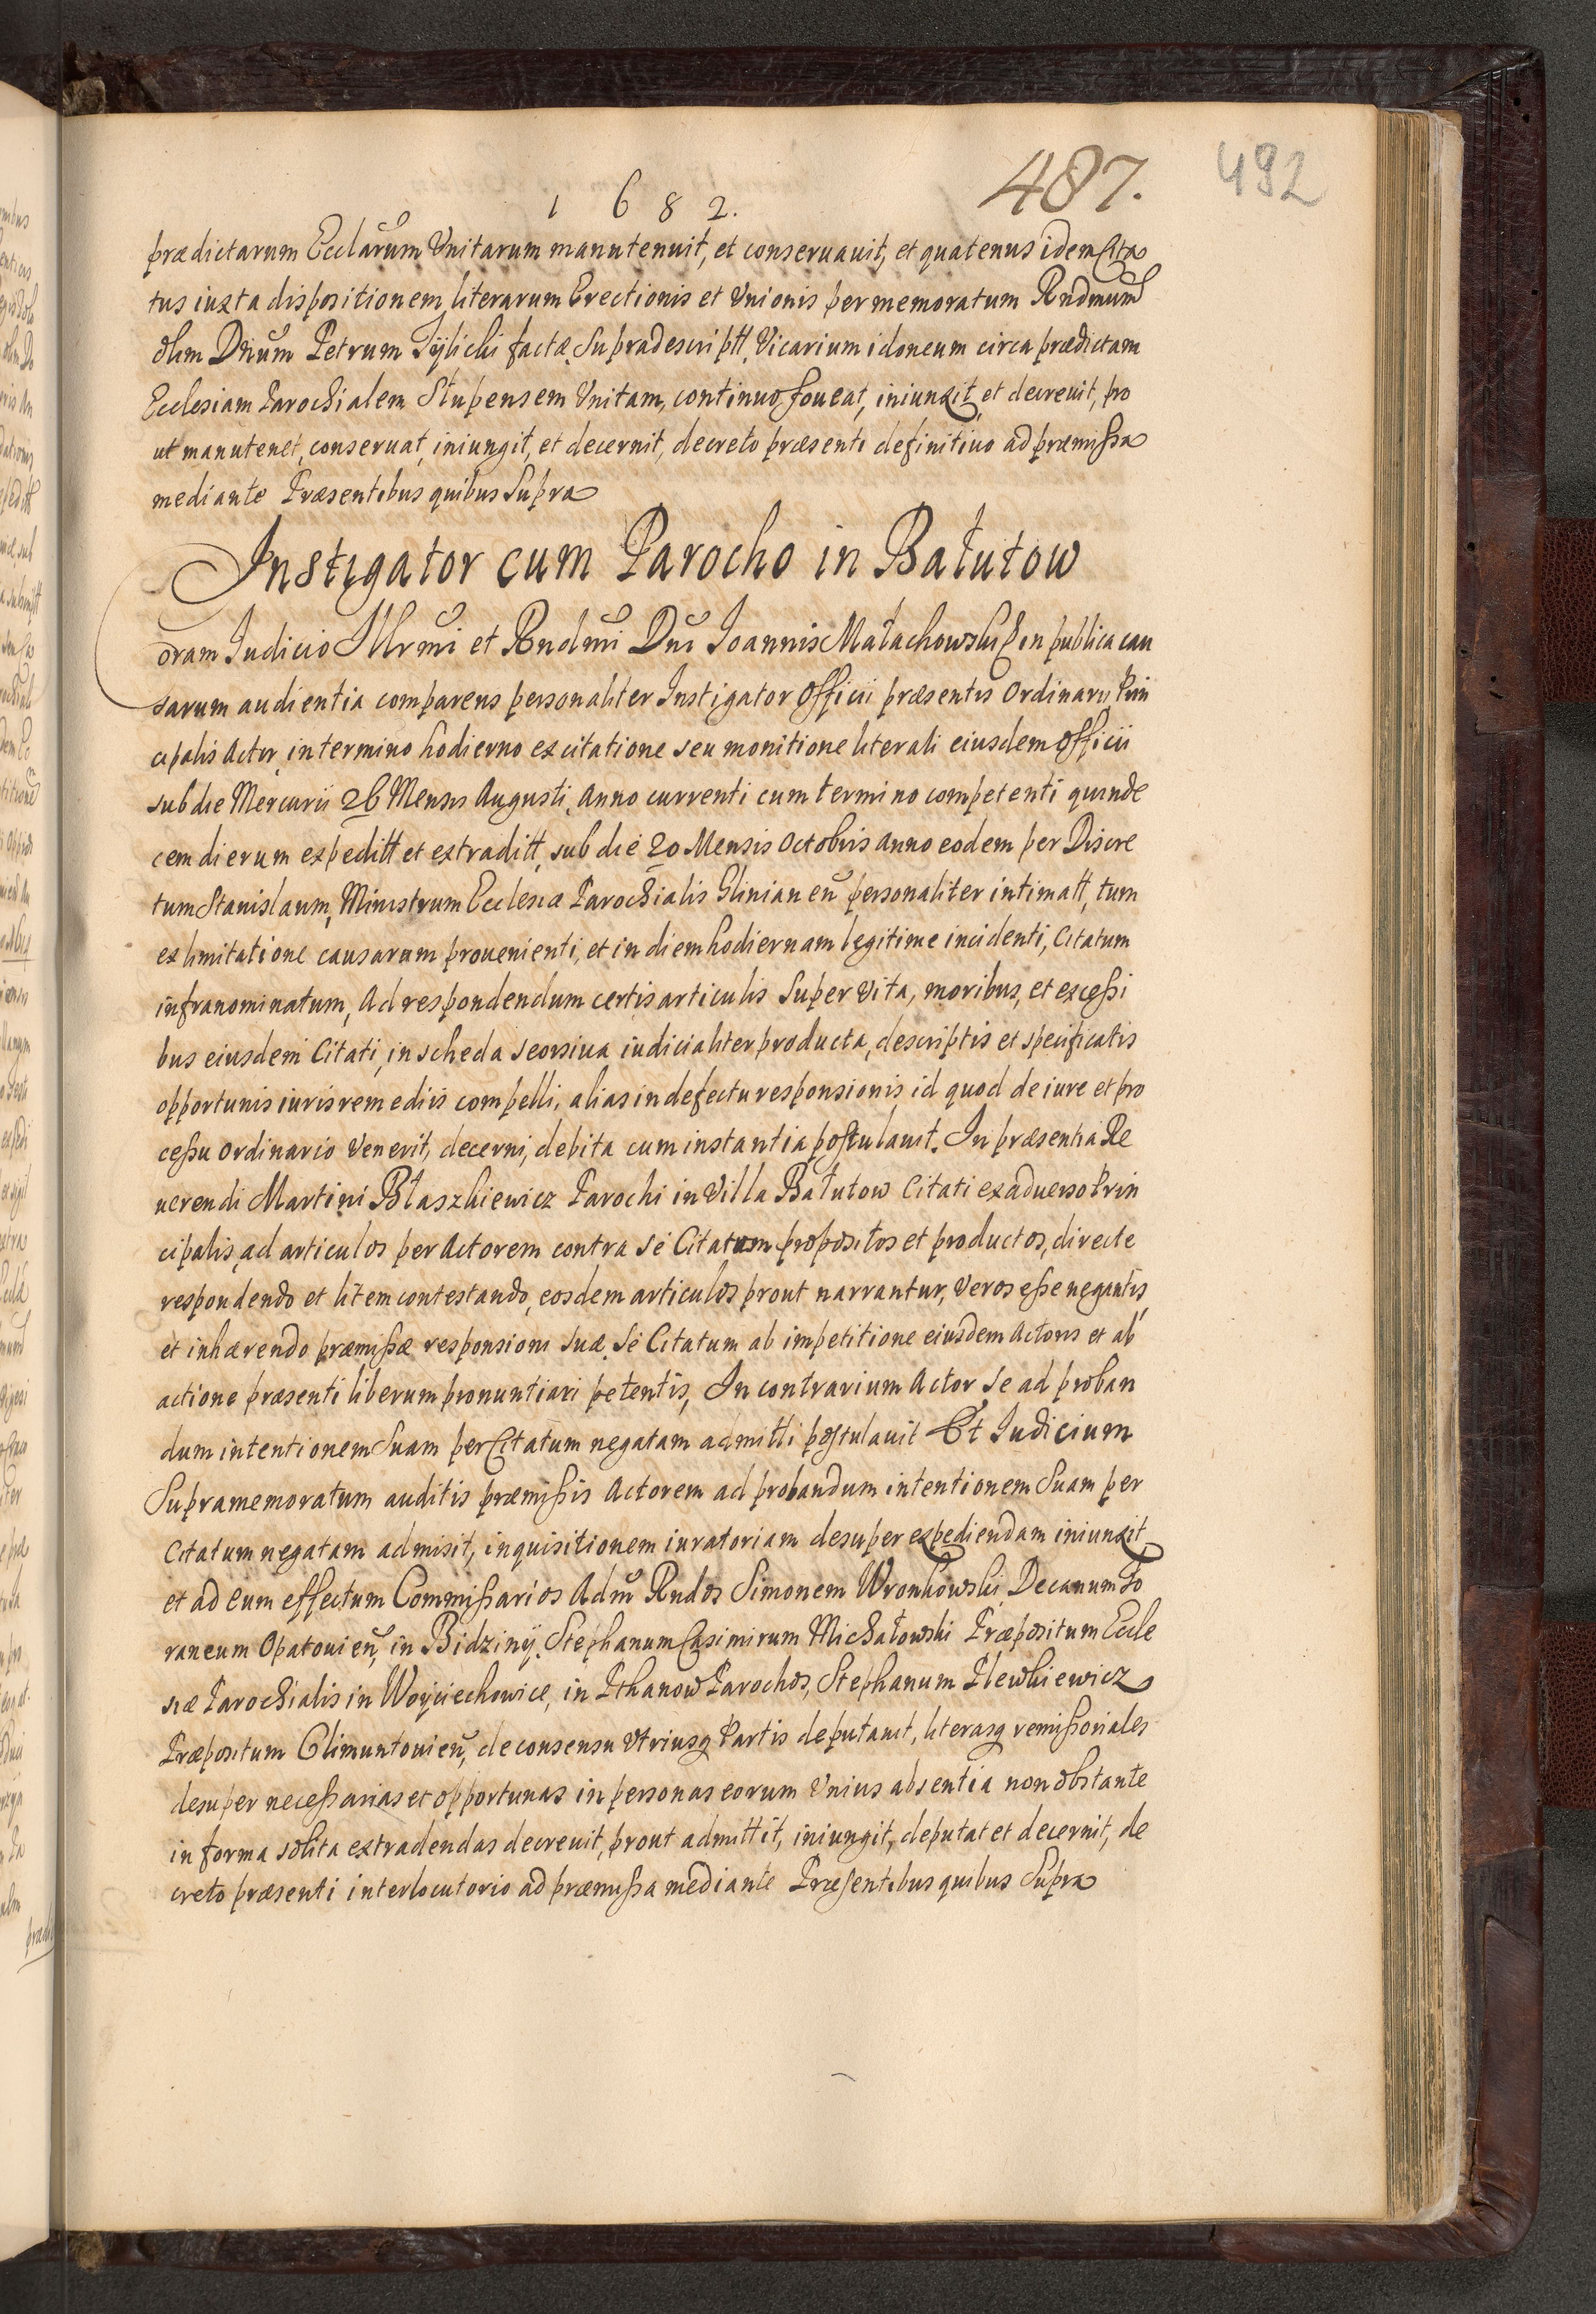 1682.
487.
492
prædictarum Eccl͠arum Vnitarum manutenuit, et conseruauit, et quatenus idem Cita
tus iuxta dispositionem literarum Erectionis et Vnionis per memoratum Rndmum͠
olim Dn͠um Petrum Tÿlicki factæ, Supradescriptt, Vicarium idoneum circa prædictam
Ecclesiam Parochialem Stupensem Vnitam, continuo foueat, iniunxit, et decreuit, pro
ut manutenet, conseruat, iniungit, et decernit, decreto præsenti definitiuo ad præmissa
mediante Præsentibus quibus Supra
Instigator cum Parocho in Bałutow
Coram Iudicio Illrm͠i et Rndm͠i Dn͠i Ioannis Małachowski E in publica cau
sarum audientia comparens personaliter Instigator Officii præsentis Ordinarii Prin
cipalis Actor, in termino hodierno ex citatione seu monitione literali eiusdem Officii
sub die Mercurii 26 Mensis Augusti, Anno currenti cum termino competenti quinde
cem dierum expeditt et extraditt, sub die 20 Mensis Octobris anno eodem per Discre
tum Stanislaum, Ministrum Ecclesiæ Parochialis Glinianen͠ personaliter intimatt, tum
ex limitatione causarum prouenienti, et in diem hodiernam legitime incidenti, Citatum
infranominatum, Ad respondendum certis articulis Super vita, moribus, et excessi
bus eiusdem Citati, in scheda seorsiua iudicialiter producta, descriptis et specificatis
opportunis iuris remediis compelli, alias in defectu responsionis id quod de iure et pro
cessu ordinario Venerit, decerni, debita cum instantia postulauit. In præsentia Re
uerendi Martini Błaszkiewicz Parochi in Villa Bałutow Citati ex aduerso Prin
cipalis, ad articulos per Actorem contra se Citatum propositos et productos, directe
respondendo et litem contestando, eosdem articulos prout narrantur, Veros esse negantis,
et inhærendo præmissæ responsioni suæ, Se Citatum ab impetitione eiusdem Actoris et ab
actione præsenti liberum pronuntiari petentis, In contrarium Actor Se ad proban
dum intentionem Suam per Citatum negatam admitti postulauit Et Iudicium
Supramemoratum auditis præmissis Actorem ad probandum intentionem Suam per
Citatum negatam admisit, inquisitionem iuratoriam desuper expediendam iniunxit,
et ad eum effectum Commissarios Adm͠ Rndos Simonem Wronkowski Decanum Fo
raneum Opatouien͠, in Bidzinÿ, Stephanum Casimirum Michałowski Præpositum Eccle
siæ Parochialis in Woÿciechowice, in Ptkanow Parochos, Stephanum Plewkiewicz
Præpositum Climuntouien͠, de consensu Vtriusq Partis deputauit, literasq remissoriales
desuper necessarias et opportunas in personas eorum Vnius absentia non obstante
in forma solita extradendas decreuit, prout admittit, iniungit, deputat et decernit, de
creto præsenti interlocutorio ad præmissa mediante Præsentibus quibus Supra